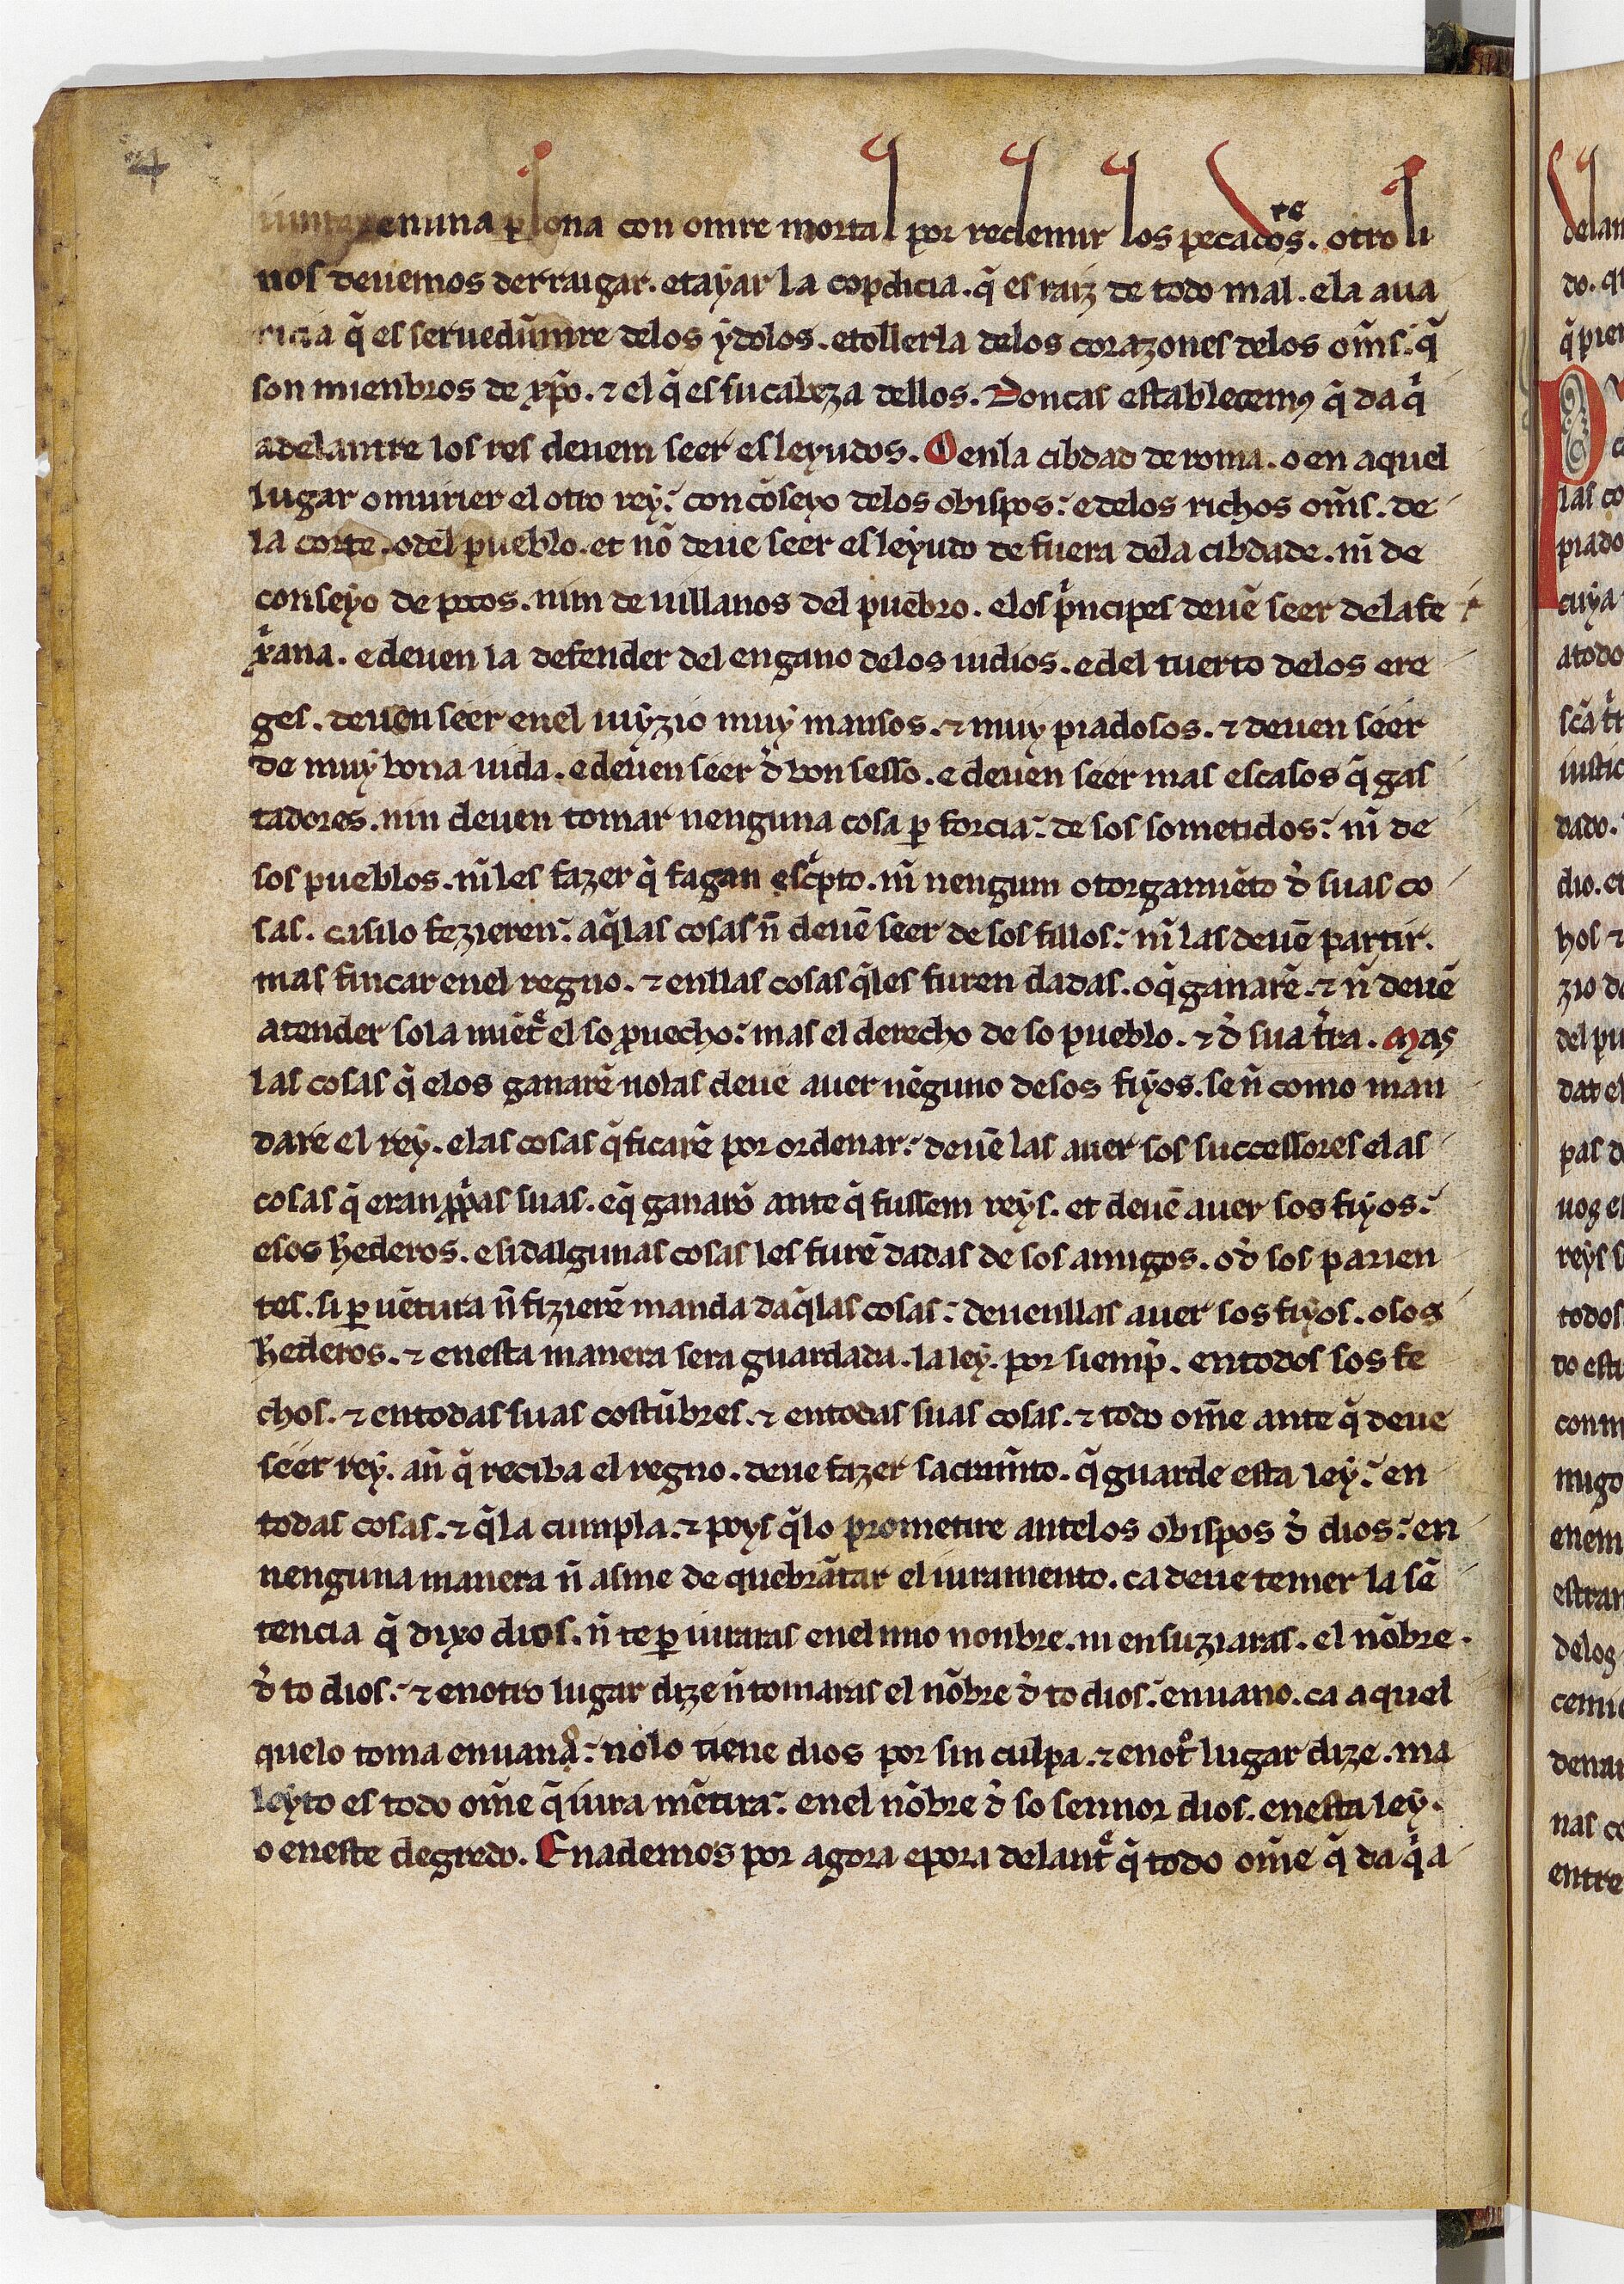 enuna ꝑsona con omre mortal por redemir los pecadores. otro si
nos deuemos derraigar. etaẏar la copdicia. q̃ es raiz de todo mal. ela aua
ricia q̃ es seruedũmre delos ẏdolos. etollerla delos corazones delos om̃s. q̃
son mienbros de xp̃o. ⁊ el q̃ es su cabeza dellos. Doncas establecemꝰ q̃ da q̃
adelantre los res deuem seer esleyudos. O enla cibdad de roma. o en aquel
lugar o murier el otro reẏ. con cõseyo delos obispos. e delos richos om̃s. de
la corte. o del pueblo. et nõ deue seer esleẏudo de fuera dela cibdade. nĩ de
conseẏo de pocos. nin de uillanos del puebro. elos p̃ncipes deuẽ seer dela fe
xr̃ana. e deuen la defender del engano delos iudios. e del tuerto delos ere
ges. deuen seer enel iuẏzio muẏ mansos. ⁊ muy piadosos. ⁊ deuen seer
de muẏ bona uida. e deuen seer d̃ bon sesso. e deuen seer mas escasos q̃ gas
tadores. nin deuen tomar nenguna cosa ꝑ forcia. de sos sometidos. nĩ de
sos pueblos. nĩ les fazer q̃ fagan esc̃pto. nĩ nengum otorgamiẽto d̃ suas co
sas. ca si lo fezieren. aq̃las cosas ñ deuẽ seer de sos fillos. nĩ las deuẽ partir.
mas fincar enel regno. ⁊ enllas cosas q̃les furen dadas. o q̃ ganarẽ. ⁊ ñ deuẽ
atender sola miẽtͤ el so ꝓuecho. mas el derecho de so pueblo. ⁊ d̃ sua t̃ra. Mas
las cosas q̃ elos ganarẽ nolas deue auer nẽguno desos fiẏos. se ñ como man
dare el reẏ. elas cosas q̃ ficarẽ por ordenar. deuẽ las auer sos successores elas
cosas q̃ eran ꝓp̃as suas. e q̃ ganarõ ante q̃ fussem reẏs. et deuẽ auer sos fiẏos.
esos hederos. e si dalgunas cosas les furẽ dadas de sos amigos. o d̃ sos parien
tes. si ꝑ uẽtura ñ fizierẽ manda daq̃las cosas. deuenllas auer sos fiẏos. o sos
hederos. ⁊ enesta manera sera guardada. la leẏ. por siemp̃. en todos sos fe
chos. ⁊ en todas suas costũbres. ⁊ en todas suas cosas. ⁊ todo om̃e ante q̃ deue
seer reẏ. añ q̃ reciba el regno. deue fazer sacram̃to. q̃ guarde esta leẏ. en
todas cosas. ⁊ q̃ la cumpla. ⁊ poys q̃lo prometire antelos obispos d̃ dios. en
nenguna manera ñ asme de quebrãtar el iuramento. ca deue temer la sẽ
tencia q̃ dixo dios. ñ te ꝑ iuraras enel mio nonbre. ni ensuziaras. el nõbre.
d̃ to dios. ⁊ en otro lugar dize ñ tomaras el nõbre d̃ to dios. en uano. ca aquel
quelo toma en uano. nolo tiene dios por sin culpa. ⁊ en otͦ lugar dize. ma
leẏto es todo om̃e q̃ iura mẽtira. enel nõbre d̃ so sennor dios. enesta leẏ.
o eneste degredo. Enademos por agora epora delantͤ q̃ todo om̃e q̃ da q̃ a